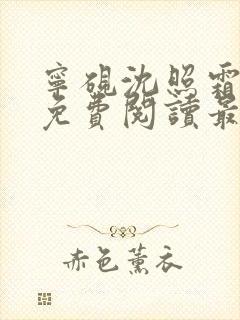 寧硯沈照霜
免費閱讀最
赤色薰衣